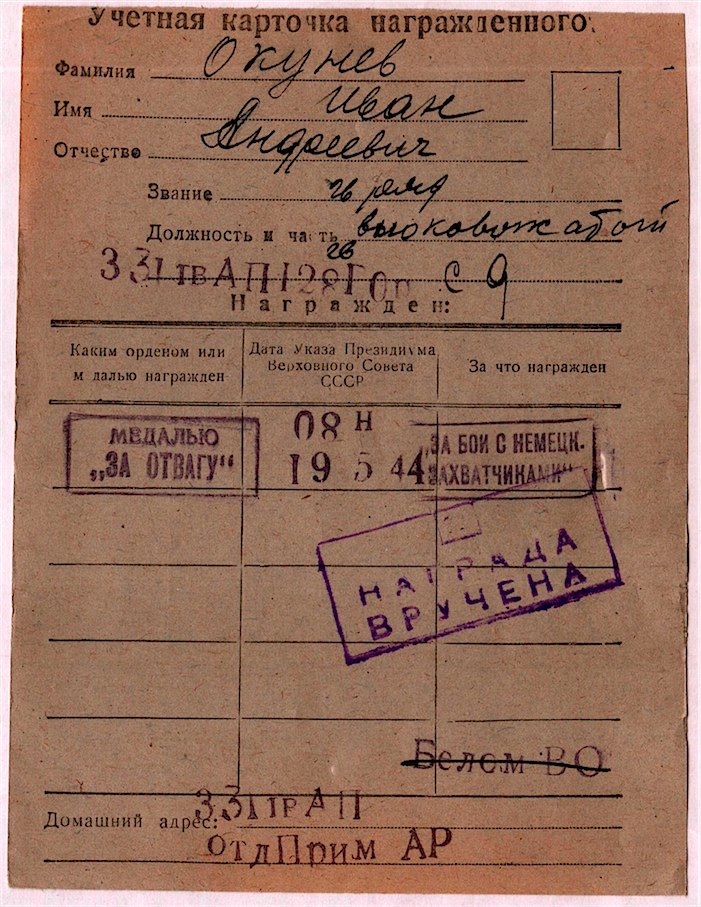 Учетная карточка награжденного.
Фамилия Окунев
Имя Иван
Отчество Андреевич
Звание гв ряд
Должность и часть вьюковожатый
гв
331 гв АП 128 Гор сд
Награжден:
Каким орденом или
м далью награжден
Дата Указа Президиума
Верховного Совета
СССР
За что награжден
МЕДАЛЬЮ
„ЗА ОТВАГУ“
08 Н
19 5 44
„ЗА БОИ С НЕМЕЦК.
ЗАХВАТЧИКАМИ“
НАГРАДА
ВРУЧЕНА
Белом ВО
Домашний адрес: 331 гв АП
отдПрим АР